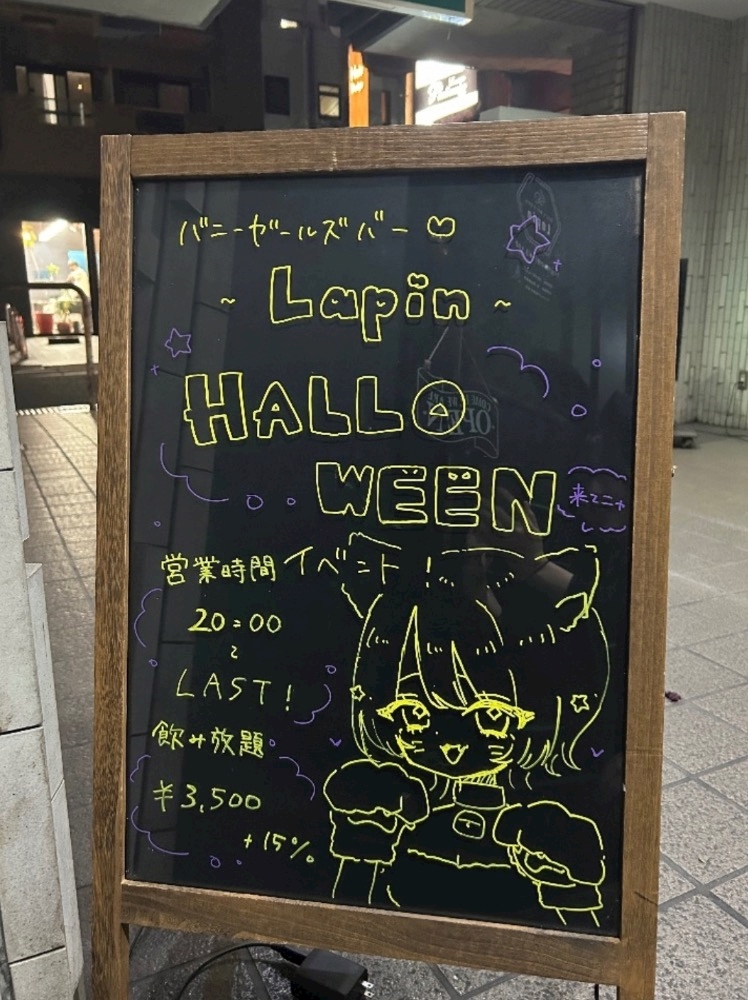 バニーガールズバー ♡
~ Lapin ~
HALLO
WEEN
来てニャ
イベント!
営業時間
20:00
〜
LAST!
飲み放題
¥3,500
+15%
OPEN